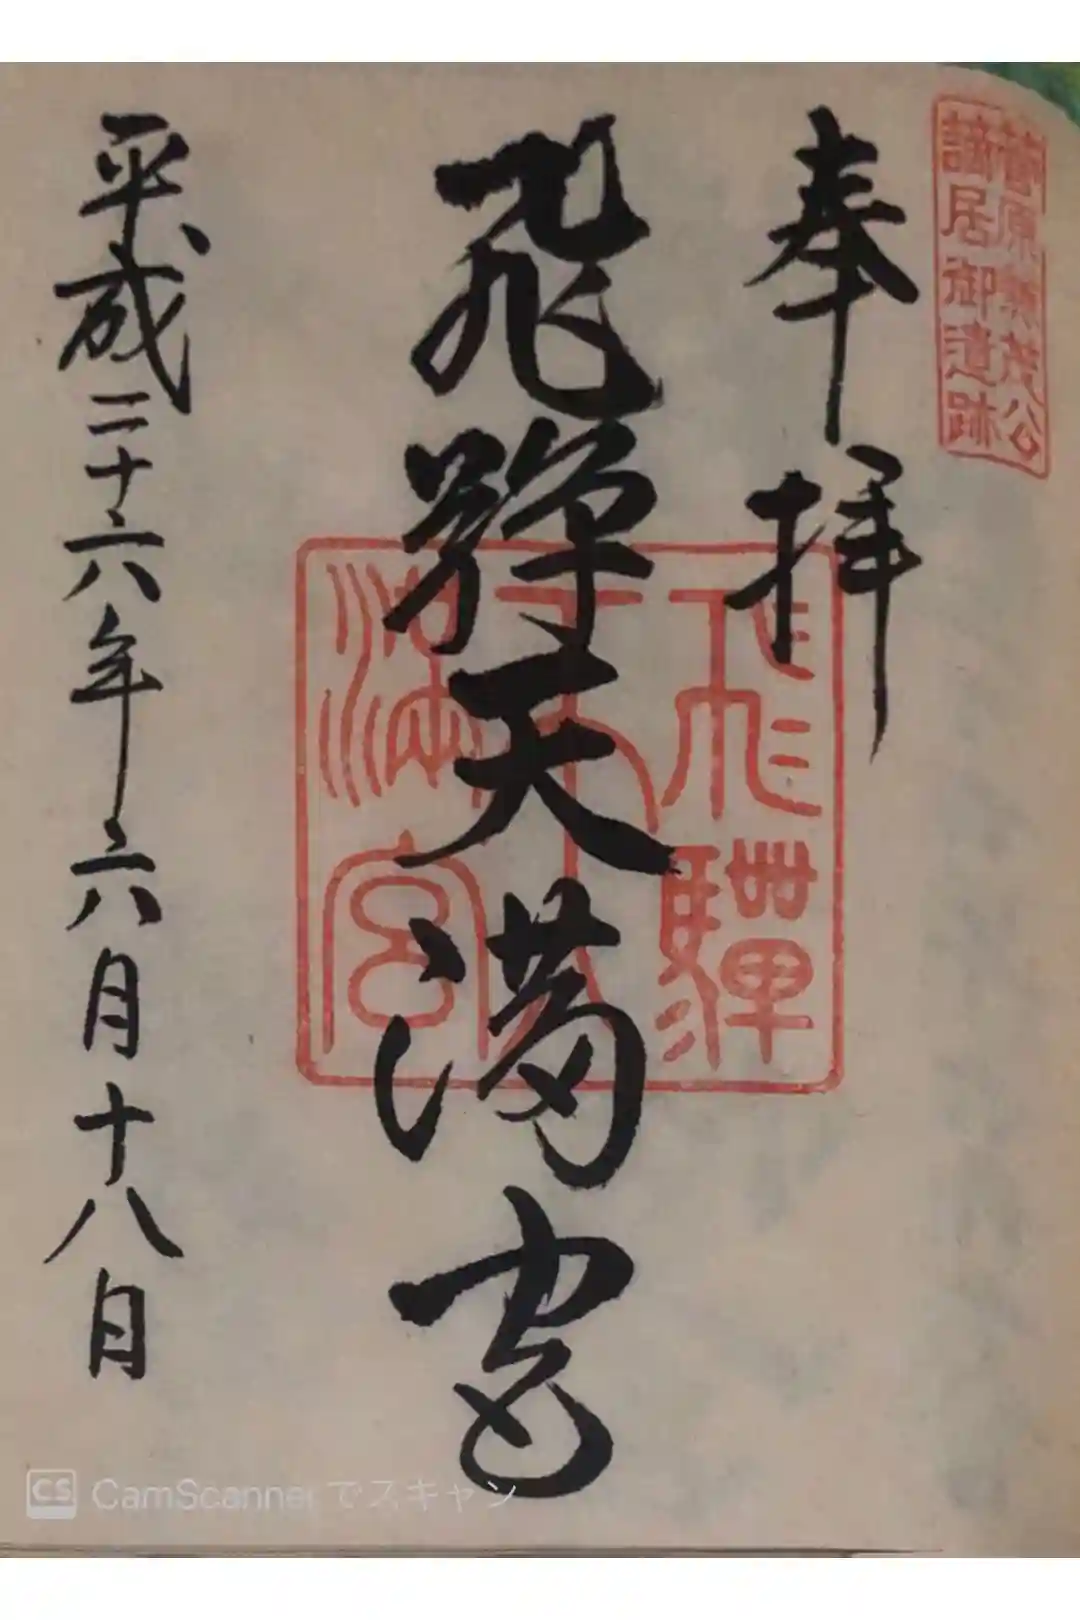 菅原兼茂公
謫居御遺跡
奉拝
飛騨天満宮
飛驒天満宮
平成二十六年六月十八日
CS CamScannerでスキャン